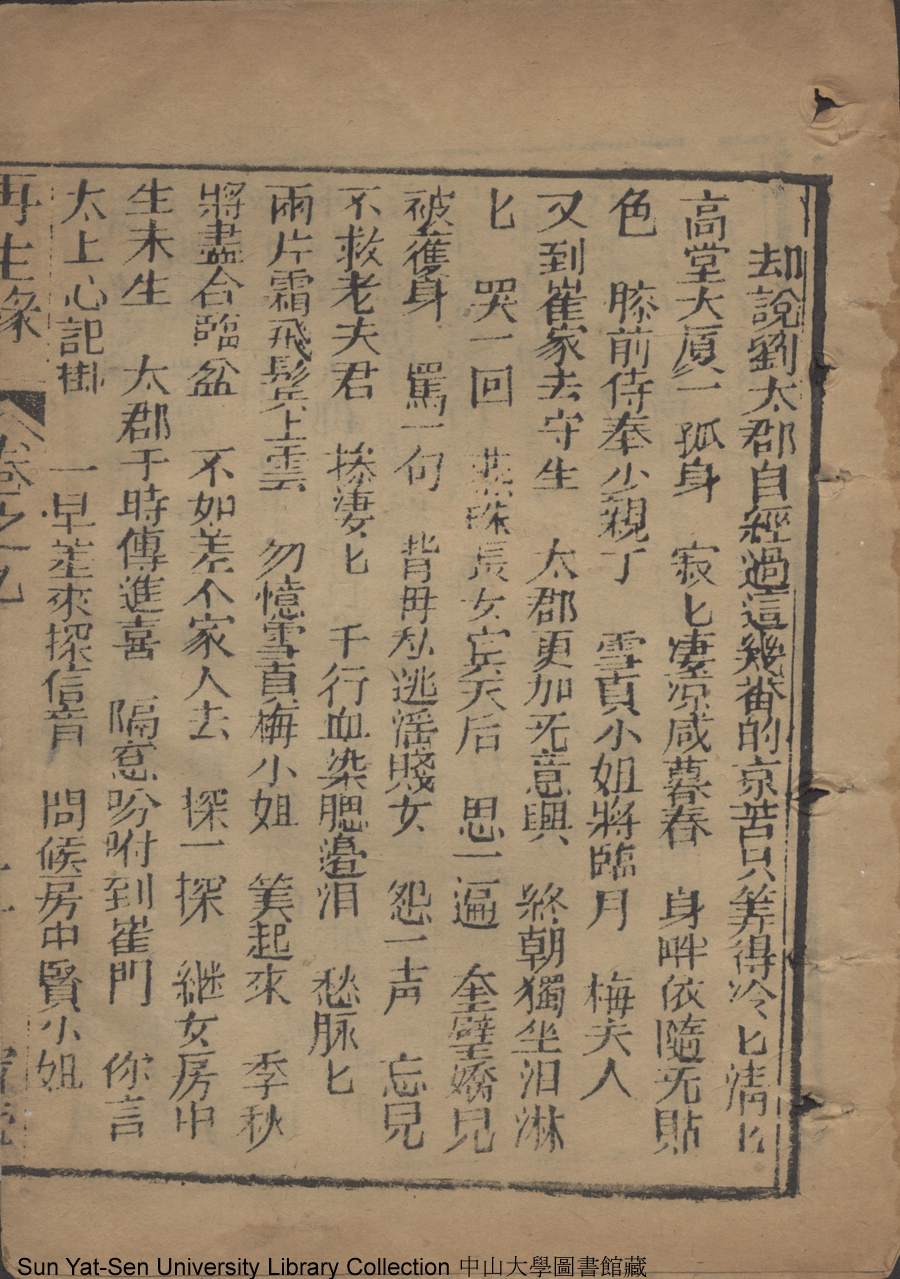 却說劉太郡自經過這幾番的京苦只筭得冷匕清匕
高堂大厦一孤身　寂匕凄凉咸暮春　身畔依隨旡貼
色　膝前侍奉少親丁　雪貞小姐將臨月　梅夫人
又到崔家去守生　太郡更加旡意興　終朝獨坐泪淋
匕　哭一回　珠長女賓天后　思一遍　奎璧嬌兒
被奎獲身　罵一句　背母私逃淫賤女　怨一声　忘兒
不救老夫君　悽匕　千行血染腮邉泪　愁脉匕
兩片霜飛鬂上雲　勿憶雪貞梅小姐　筭起來　季秋
將盡合臨盆　不如差个家人去　探一探　継女房中
生未生　太郡于時傳進喜　隔窓吩咐到崔門　你言
太上心記掛　一早差來探信音　問候房中賢小姐
再生緣　卷之九
Sun Yat-Sen University Library Collection 中山大學圖書館藏